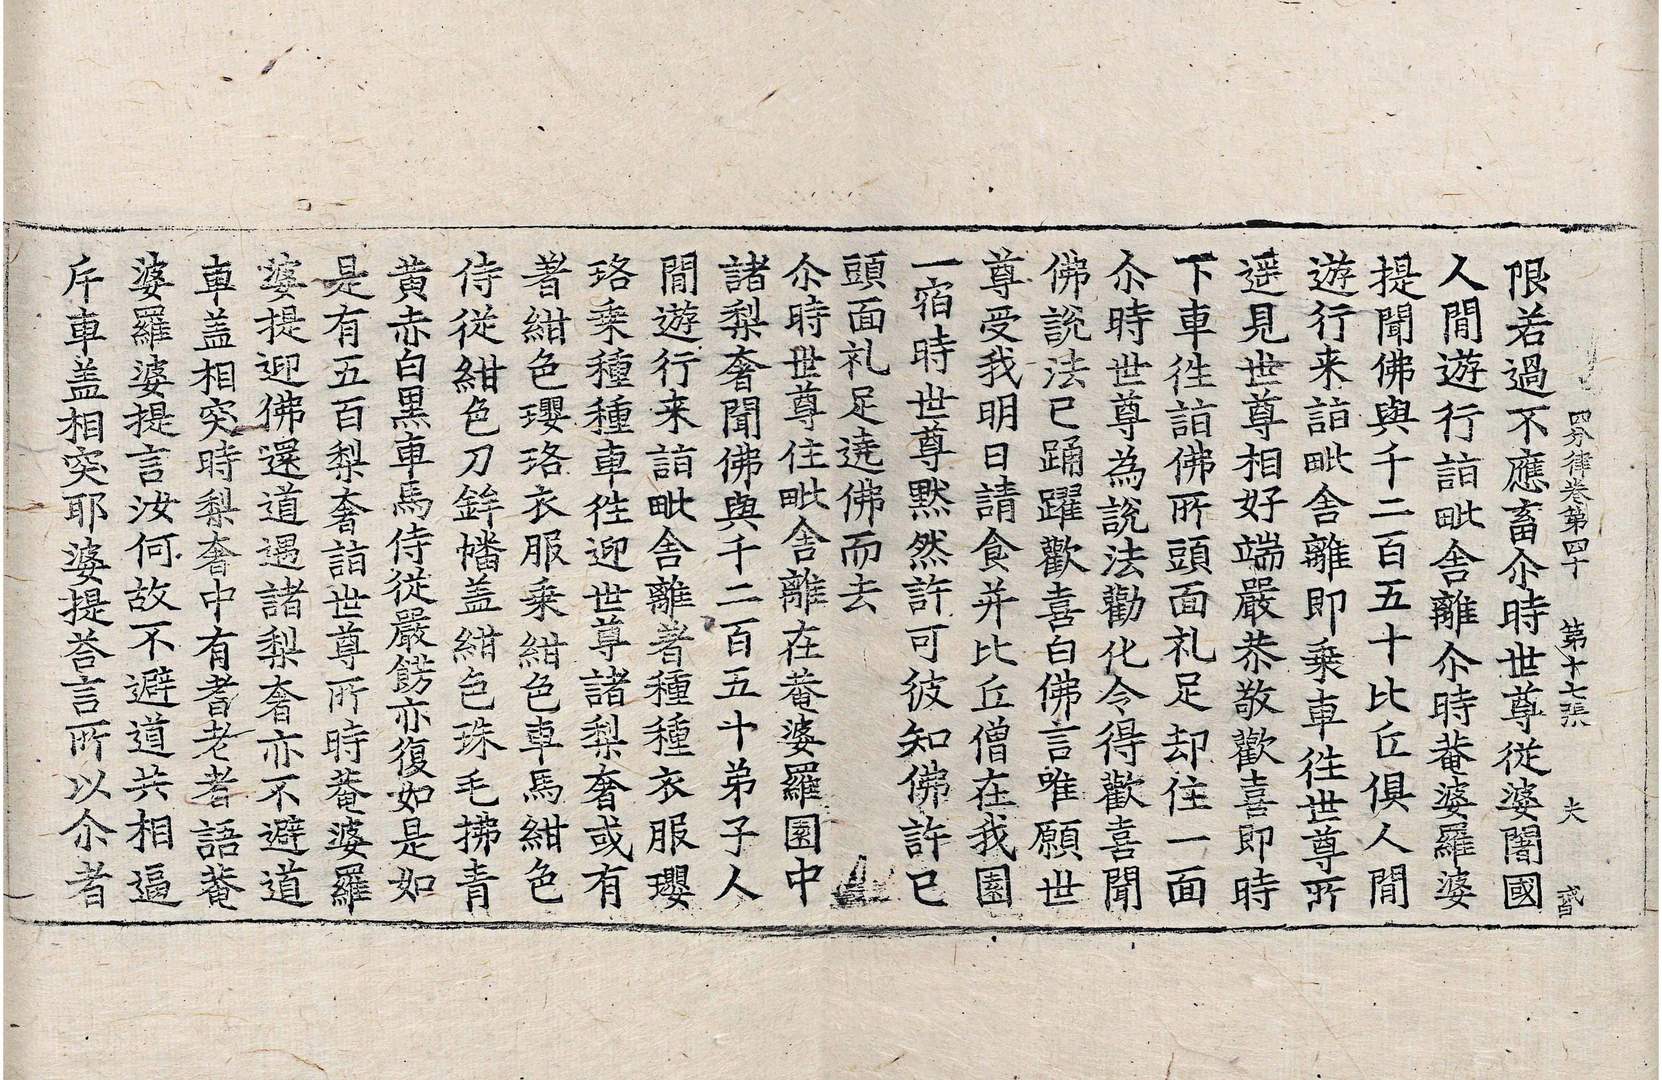 四分律卷第四十 第十七張 夫
限若過不應畜尒時世尊從婆闍國
人閒遊行詣毗舍離尒時菴婆羅婆
提聞佛與千二百五十比丘俱人閒
遊行来詣毗舍離即乗車徃世尊所
遥見世尊相好端嚴恭敬歡喜即時
下車徃詣佛所頭面礼足却住一面
尒時世尊為說法勸化令得歡喜聞
佛說法已踊躍歡喜白佛言唯願世
尊受我明日請食并比丘僧在我園
一宿時世尊黙然許可彼知佛許已
頭面礼足遶佛而去
尒時世尊住毗舍離在菴婆羅園中
諸梨奢聞佛與千二百五十弟子人
閒遊行来詣毗舍離著種種衣服瓔
珞乗種種車徃迎世尊諸梨奢或有
著紺色瓔珞衣服乗紺色車馬紺色
侍從紺色刀鉾幡盖紺色珠毛拂青
黄赤白黒車馬侍從嚴餝亦復如是如
是有五百梨奢詣世尊所時菴婆羅
婆提迎佛還道遇諸梨奢亦不避道
車盖相突時梨奢中有耆老者語菴
婆羅婆提言汝何故不避道共相逼
斥車盖相突耶婆提荅言所以尒者